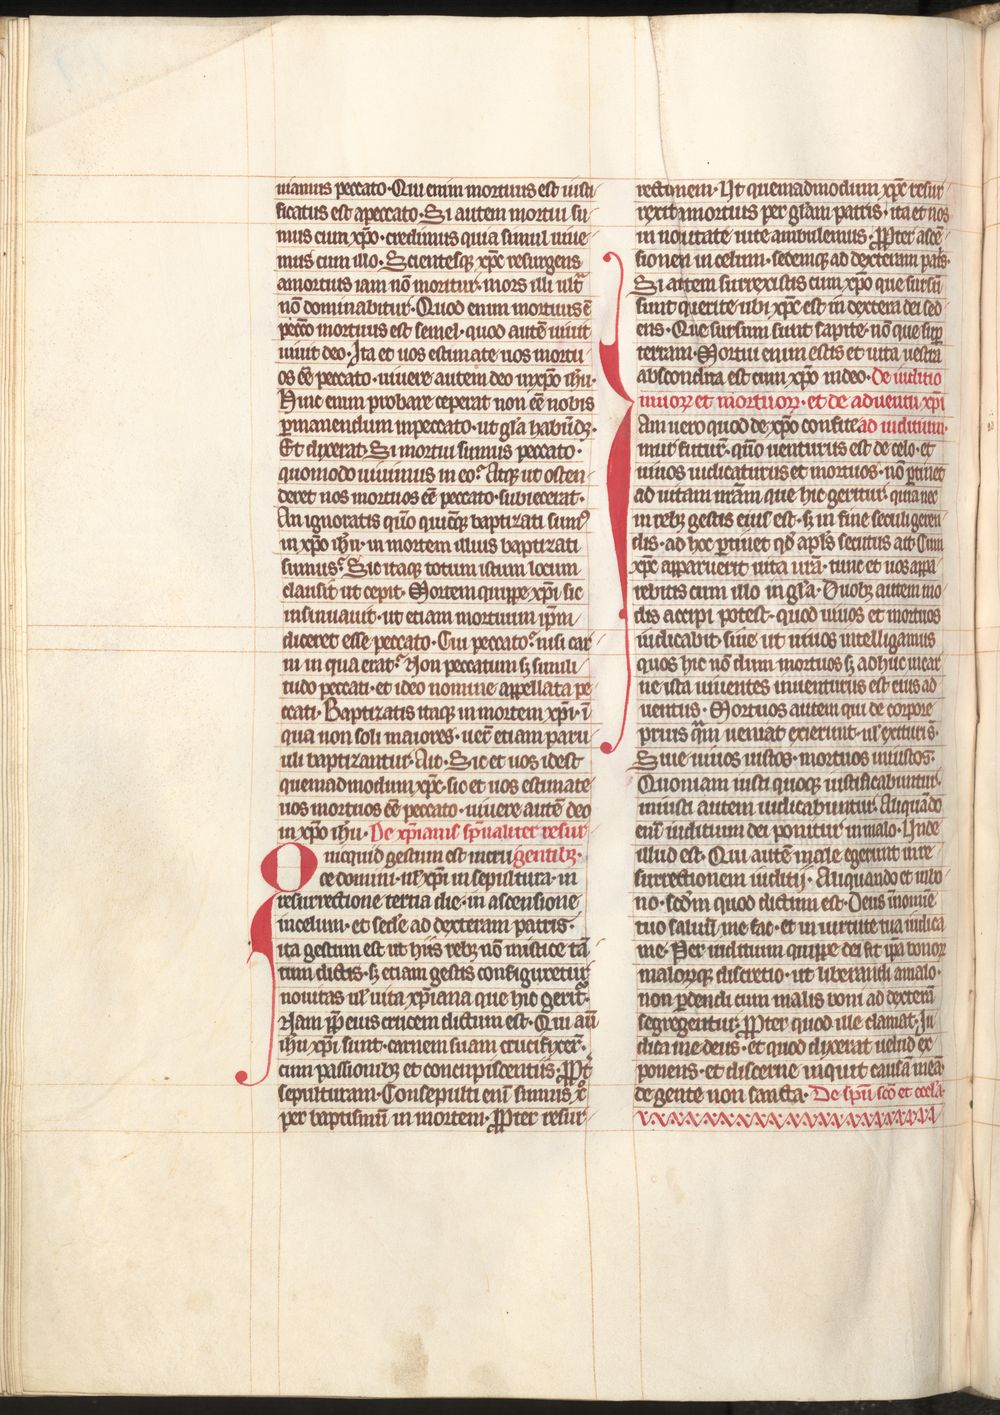 uiamus peccato. Qui enim mortuus est iusti
ficatus est apeccato. Si autem mortui su
mus cum xp̄o. credimus quia simul uiue
mus cum illo. Scientesq; xp̄c resurgens
amortuis iam nō moritur. mors illi ult̄
nō dominabitur. Quod enim mortuus ē
pccō mortuus est semel. quod autē uiuit
uiuit deo. Ita et uos estimate uos mortu
os eē peccato. uiuere autem deo inxpo ih̄u.
Hinc enim probare ceperat non eē nobis
ꝑmanendum inpeccato. ut gr̄a habund;.
Et dixerat. Si mortui sumus peccato.
quomodo uiuimus in eo? Atq; ut osten
deret nos mortuos eē peccato. subiecerat.
An ignoratis qūo quicūq; baptizati sum⁹
in xp̄o ih̄u. in mortem illius baptizati
sumus? Sic itaq; totum istum locum
clausit ut cepit. Mortem quippe xp̄i sic
insinuauit. ut etiam mortuum ip̄m
diceret esse peccato. Cui peccato? nisi car
ni in qua erat? Non peccatum s; simili
tudo peccati. et ideo nomine appellata pe
ccati. Baptizatis itaq; in mortem xp̄i. ī
qua non soli maiores. uerū etiam paru
uli baptizantur. Ait. Sic et uos idest
quemadmodum xp̄c. sic et uos estimate
uos mortuos eē peccato. uiuere autē deo
in xp̄o ih̄u. De xp̄ianis sp̄ualiter resur
Quicquid gestum est incru gentib;.
ce domini. ul' xp̄i in sepultura. in
resurrectione tertia die. in ascensione
incelum. et sede ad dexteram patris.
ita gestum est ut hiis reb; nō mistice tā
tum dictis. s; etiam gestis configuretur
nouitas ul' uita xp̄iana que hic gerit̄.
Nam ꝓp̄ eius crucem dictum est. Qui aut̄
ih̄u xp̄i sunt. carnem suam crucifixer̄.
cum passionib; et concupiscentiis. Ꝓpt̄
sepulturam. Consepulti enī sumus x̊
per baptismū in mortem. Ꝓpter resur
rectionem. Ut quemadmodum xp̄c resur
rexit amortuis per gl̄am patris. ita et nos
in nouitate uite ambulemus. Ꝓpter ascē
sionen in celum. sedemq; ad dexteram pat̄s.
Si autem surrexistis cum xp̄o que sursū
sunt querite ubi xp̄c est in dextera dei sed
ens. Que sursum sunt sapite. nō que sup̄
terram. Mortui enim estis et uita uestrā
abscondita est cum xp̄o indeo. De iuditio
uiuoꝝ et mortuoꝝ. et de aduentu xp̄i
Iam uero quod de xp̄o confite ad iuditium.
mur futur̄. qūo uenturus est de celo. et
uiuos iudicaturus et mortuos. nō ꝑtinet
ad uitam nr̄am que hic geritur. quia nec
in reb; gestis eius est. s; in fine seculi geren
dis. ad hoc ꝑtinet qd̄ apl's secutus ait. Cum
xp̄c apparuerit uita urā. tunc et uos appa
rebitis cum illo in gl̄a. Duob; autem mo
dis accipi potest. quod uiuos et mortuos
iudicabit. siue ut uiuos intelligamus
quos hic nō dum mortuos s; adhuc incar
ne ista uiuentes inuenturus est eius ad
uentus. Mortuos autem qui de corpore
prius qm̄ ueniat exierunt. ul' exituris.
Siue uiuos iustos. mortuos iniustos.
Quoniam iusti quoq; iustificabuntur.
iniusti autem iudicabuntur. Aliquādo
enī iuditium dei ponitur in malo. Unde
illud est. Qui autē male egerunt in re
surrectionem iuditij. Aliquando et inbo
no. scd̄m quod dictum est. Deus īnomīe
tuo saluū me fac. et in uirtute tua iudica
me. Per iuditium quippe dei fit ip̄a bonoꝝ
maloꝝq; discretio. ut liberandi amalo.
non ꝑdendi cum malis boni ad dexterā
segregentur. Ꝓpter quod ille clamat. Iu
dica me deus. et quod dixerat uelud ex
ponens. et discerne inquit causā meā
de gente non sancta. De sp̄u sc̄o et eccl'a.